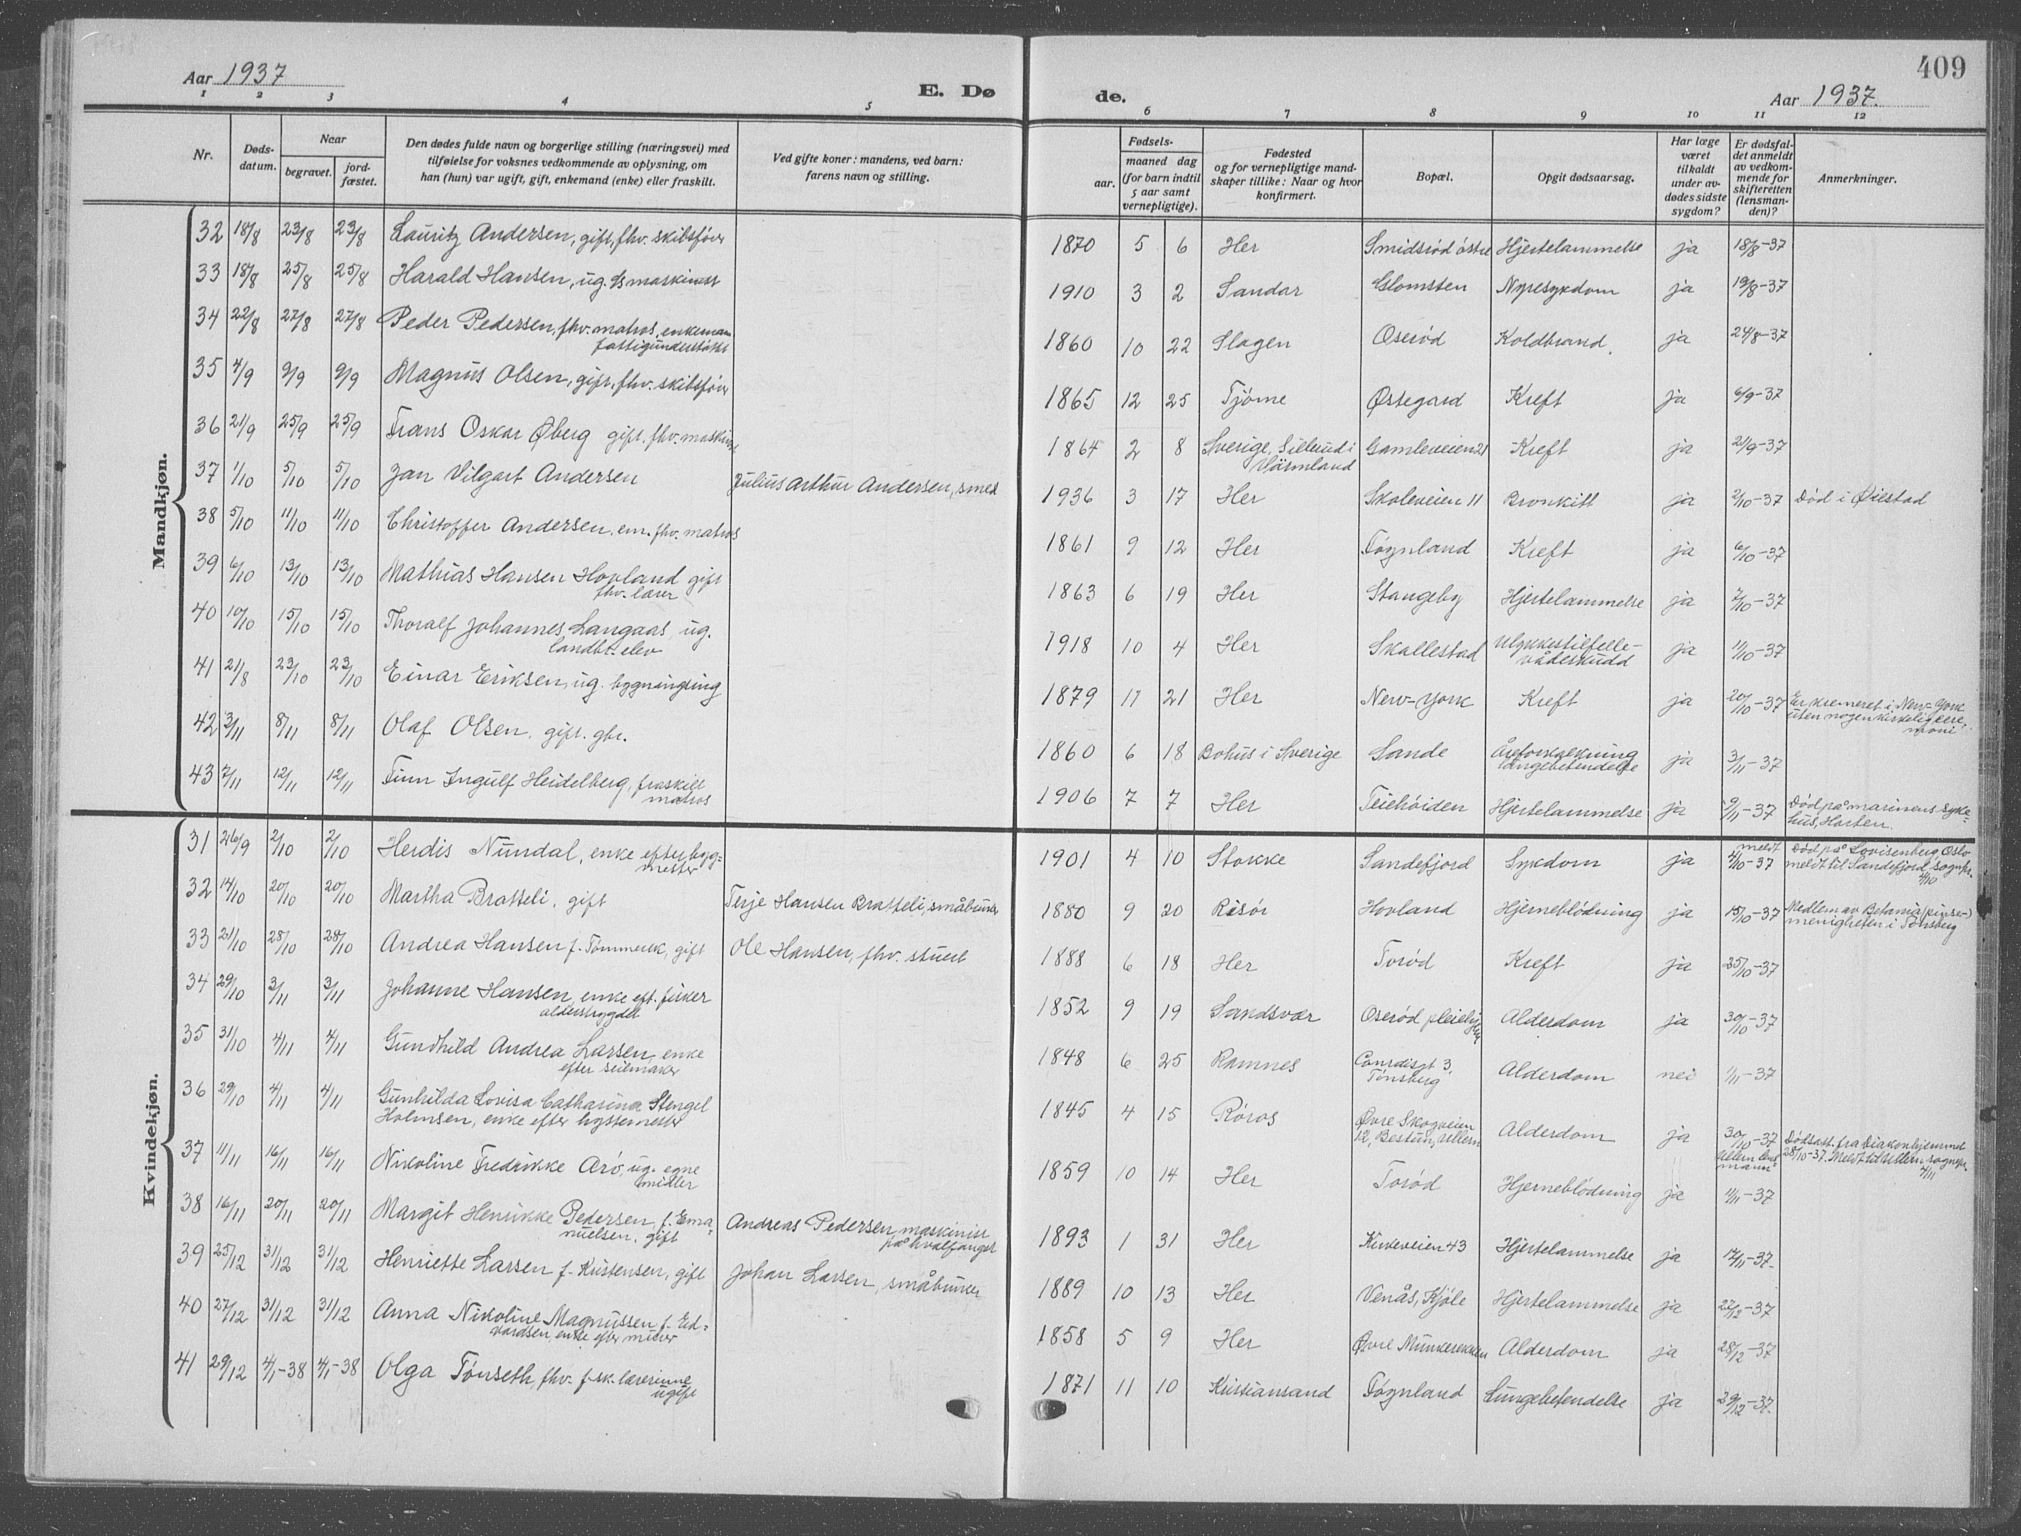 409
Aar 1937
E. Dø
de.
Aar 1937.
1 2 3 4 5
6 7 8 9 10 11 12
Nr.
Døds-
datum.
Naar
begravet.
jord-
fæstet.
Den dødes fulde navn og borgerlige stilling (næringsvei) med
tilføielse for voksnes vedkommende av oplysning, om
han (hun) var ugift, gift, enkemand (enke) eller fraskilt.
Ved gifte koner: mandens, ved barn:
farens navn og stilling.
Fødsels-
aar.
maaned dag
(for barn indtil
5 aar samt
vernepligtige).
Fødested
og for vernepligtige mand-
skaper tillike: Naar og hvor
konfirmert.
Bopæl.
Opgit dødsaarsag.
Har læge
været
tilkaldt
under av-
dødes sidste
sygdom?
Er dødsfal-
det anmeldt
av vedkom-
mende for
skifteretten
(lensman-
den)?
Anmerkninger.
Mandkjøn.
32 18/8 23/8 23/8 Lauritz Andersen, gift, fhv. skibsfører 1870 5 6 Her Smidsrød østre Hjertelammelse ja 18/8-37
33 18/8 25/8 25/8 Harald Hansen, ug. maskinist 1910 3 2 Sandar Glomsten Nyresykdom ja 19/8-37
34 22/8 27/8 27/8 Peder Pedersen, fhv. matros, enkemann 1860 10 22 Slagen Oserød Koldbrand. ja 24/8-37
fattigunderstøttet
35 4/9 9/9 9/9 Magnus Olsen, gift, fhv. skibsfører 1865 12 25 Tjøme Østegard Kreft ja 6/9-37
36 21/9 25/9 25/9 Frans Oskar Øberg gift. fhv. maskinist 1864 2 8 Sverige, Sillerud i Gamleveien 21 Kreft ja 21/9-37
Värmland
37 1/10 5/10 5/10 Jan Vilgart Andersen Julius Arthur Andersen, smed 1936 3 17 Her Skoleveien 11 Bronkitt ja 2/10-37 Død i Øiestad
38 5/10 11/10 11/10 Christoffer Andersen, em. fhv. matros 1861 9 12 Her Føynland Kreft ja 6/10-37
39 6/10 13/10 13/10 Mathias Hansen Hovland gift 1863 6 19 Her Stangeby Hjertelammelse ja 7/10-37
fhv. lærer
40 10/10 15/10 15/10 Thoralf Johannes Langaas, ug. 1918 10 4 Her Skallestad Ulykkestilfelle- ja 11/10-37
landbr. elev
vådeskudd
41 21/8 23/10 23/10 Einar Eriksen, ug. bygningsing 1879 11 21 Her New-York Kreft ja 20/10-37 Er kremeret i New-York
uten nogen kirkelig cere-
moni
42 3/11 8/11 8/11 Olaf Olsen, gift. gbr. 1860 6 18 Bohus i Sverige Sande Åreforkalkning ja 3/11-37
lungebetendelse
43 7/11 12/11 12/11 Finn Ingulf Heidelberg, fraskilt 1906 7 7 Her Teiehøiden Hjertelammelse ja 9/11-37 Død på marinens syke-
matros
hus, Horten.
Kvindekjøn.
31 26/9 2/10 2/10 Herdis Nundal, enke efter bygg- 1901 4 10 Stokke Sandefjord Sykdom ja meldt 4/10-37 Død på Lovisenberg Oslo
mester
meldt til Sandefjord sognepr.
4/10
32 14/10 20/10 20/10 Martha Bratteli, gift Terje Hansen Bratteli, småbruker 1880 9 20 Risør Hovland Hjerneblødning ja 15/10-37 Medlem av Betania (pinse-)
menigheten i Tønsberg
33 21/10 28/10 28/10 Andrea Hansen f. Tømmerek, gift Ole Hansen, fhv. stuert 1888 6 18 Her Torød Kreft ja 25/10-37
34 29/10 3/11 3/11 Johanne Hansen, enke eft. fisker 1852 9 19 Sandsvær Oserød pleiehjem Alderdom ja 30/10-37
alderstrygdet
35 31/10 4/11 4/11 Gundhild Andrea Larsen, enke 1848 6 25 Ramnes Conradisgt 3, Alderdom nei 1/11-37
efter seilmaker
Tønsberg
36 29/10 4/11 4/11 Gunhilda Lovisa Catharina Stengel 1845 4 15 Røros Øvre Skogveien Alderdom ja 30/10-37 Dødsatt. fra Diakonhjemmet
Holmsen, enke efter hyttemester
12, Bestun, Ullern
Ullern lens-
mann
28/10-37. Meldt til Ullern sognepr.
4/11
37 11/11 16/11 16/11 Nikoline Fredrikke Arø, ug. egne 1859 10 14 Her Torød Hjerneblødning ja 11/11-37
midler
38 16/11 20/11 20/11 Margit Henrikke Pedersen, f. Ema- Andreas Pedersen, maskinist 1893 1 31 Her Kirkeveien 43 Hjertelammelse ja 17/11-37.
nuelsen, gift
på hvalfangst
39 25/12 31/12 31/12 Henriette Larsen f. Kristensen, gift Johan Larsen, småbruker 1889 10 13 Her Venås, Kjøle Hjertelammelse ja 27/12-37
40 27/12 31/12 31/12 Anna Nikoline Magnussen f. Ed- 1858 5 9 Her Øvre Munkerekken Alderdom ja 28/12-37
vardsen, enke efter murer
41 29/12 4/1-38 4/1-38 Olga Tønseth, fhv. f.sk. lærerinne 1871 11 10 Kristiansand Føynland Lungebetendelse ja 29/12-37.
ugift